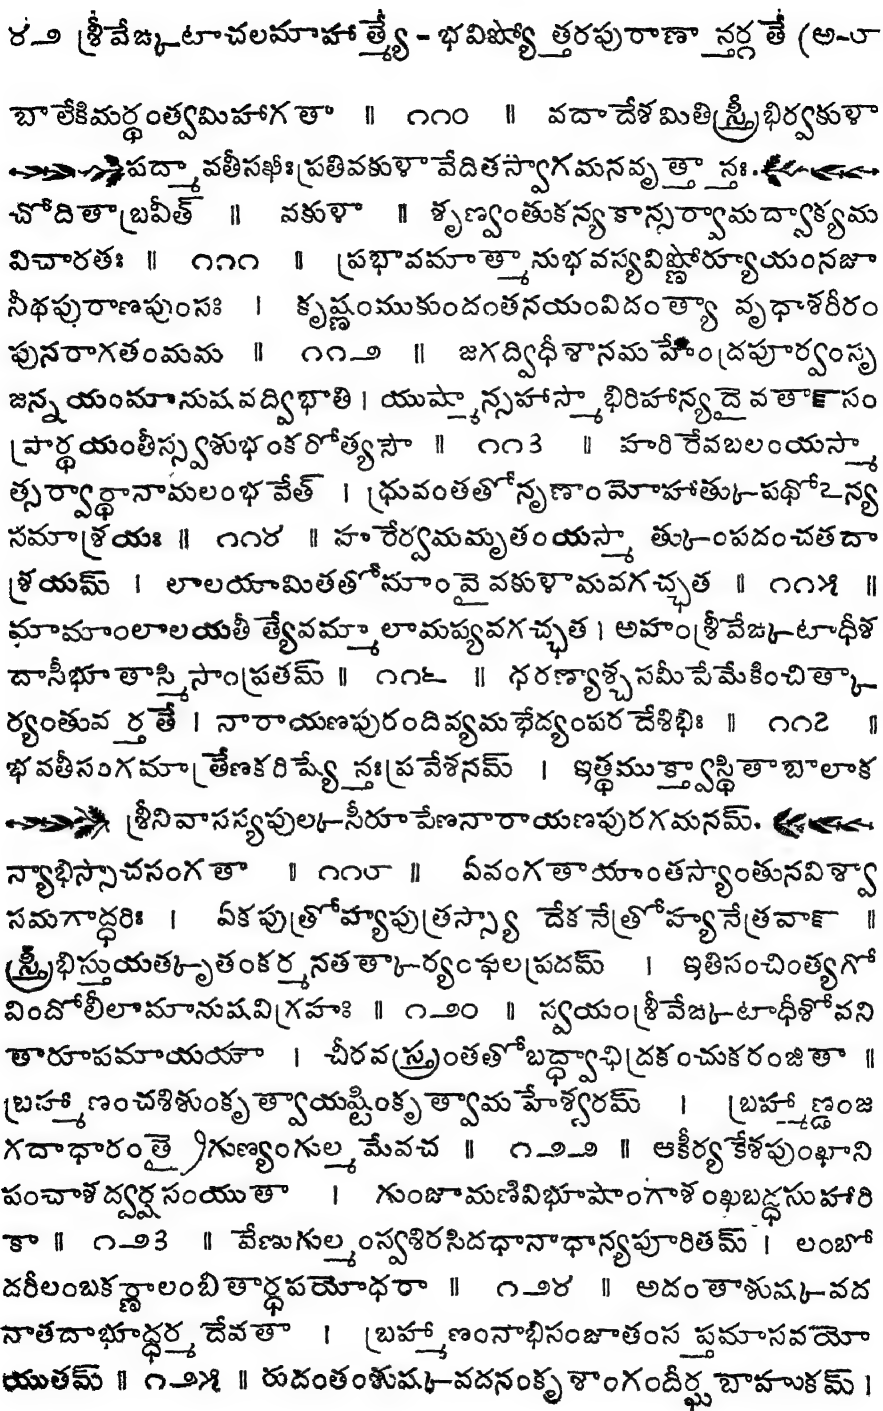 ౪౨ శ్రీవేఙ్కటాచలమాహాత్మ్యే - భవిష్యోత్తరపురాణాన్తర్గతే (అ-౧
బాలేకిమర్థంత్వమిహాగతా ॥ ౧౧౦ ॥ వదాదేశమితిస్త్రీభిర్వకుళా
పద్మావతీసఖీఃప్రతివకుళావేదితస్వాగమనవృత్తాన్తః.
చోదితాబ్రవీత్ ॥ వకుళా ॥ శృణ్వంతుకన్యకాన్సర్వామద్వాక్యమ
విచారతః ॥ ౧౧౧ ॥ ప్రభావమాత్మానుభవస్యవిష్ణోర్యూయంనజా
నీథపురాణపుంసః । కృష్ణంముకుందంతనయంవిదంత్యా వృథాశరీరం
పునరాగతంమమ ॥ ౧౧౨ ॥ జగద్విధీశానమహేంద్రపూర్వంసృ
జన్నయంమానుషవద్విభాతి । యుష్మాన్సహాస్మాభిరిహాన్యదైవతాన్ సం
ప్రార్థయంతీస్స్వశుభంకరోత్యసౌ ॥ ౧౧౩ ॥ హరిరేవబలంయస్మా
త్సర్వార్థానామలంభవేత్ । ధ్రువంతతోనృణాంమోహాత్కుపథోఽన్య
సమాశ్రయః ॥ ౧౧౪ ॥ హరేర్వమమృతంయస్మాత్కుంపదంచతదా
శ్రయమ్ । లాలయామితతోనూంవైవకుళామవగచ్ఛత ॥ ౧౧౫ ॥
మామాంలాలయతీత్యేవమ్మాలామప్యవగచ్ఛత । అహంశ్రీవేఙ్కటాధీశ
దాసీభూతాస్మిసాంప్రతమ్ ॥ ౧౧౬ ॥ ధరణ్యాశ్చసమీపేమేకించిత్కా
ర్యంతువర్తతే । నారాయణపురందివ్యమభేద్యంపరదేశిభిః ॥ ౧౧౭ ॥
భవతీసంగమాత్తేణకరిష్యేన్తఃప్రవేశనమ్ । ఇత్థముక్త్వాస్థితాబాలాక
శ్రీనివాసస్యపుల్కసీరూపేణనారాయణపురగమనమ్.
న్యాభిస్సాచసంగతా ॥ ౧౧౮ ॥ ఏవంగతాయాంతస్యాంతునవిశ్వా
సమగాద్ధరిః । ఏకపుత్రోహ్యపుత్రస్స్యాదేకనేత్రోహ్యనేత్రవాన్ ॥
స్త్రీభిస్తుయత్కృతంకర్మనతత్కార్యంఫలప్రదమ్ । ఇతిసంచింత్యగో
విందోలీలామానుషవిగ్రహః ॥ ౧౨౦ ॥ స్వయంశ్రీవేఙ్కటాధీశోవని
తారూపమాయయౌ । చీరవస్త్రంతతోబద్ధ్వాఛిద్రకంచుకరంజితా ॥
బ్రహ్మాణంచశిశుంకృత్వాయష్టింకృత్వామహేశ్వరమ్ । బ్రహ్మాణ్డంజ
గదాధారంత్రైగుణ్యంగుల్మమేవచ ॥ ౧౨౨ ॥ ఆకీర్యకేశపుంఖాని
పంచాశద్వర్షసంయుతా । గుంజామణివిభూషాంగాశంఖబద్ధసుహారి
కా ॥ ౧౨౩ ॥ వేణుగుల్మంస్వశిరసిదధానాధాన్యపూరితమ్ । లంబో
దరీలంబకర్ణాలంబితార్ధపయోధరా ॥ ౧౨౪ ॥ అదంతాశుష్కవద
నాతదాభూద్ధర్మదేవతా । బ్రహ్మాణంనాభిసంజాతంసప్తమాసవయో
యుతమ్ ॥ ౧౨౫ ॥ రుదంతంశుష్కవదనంకృశాంగందీర్ఘబాహుకమ్ ।